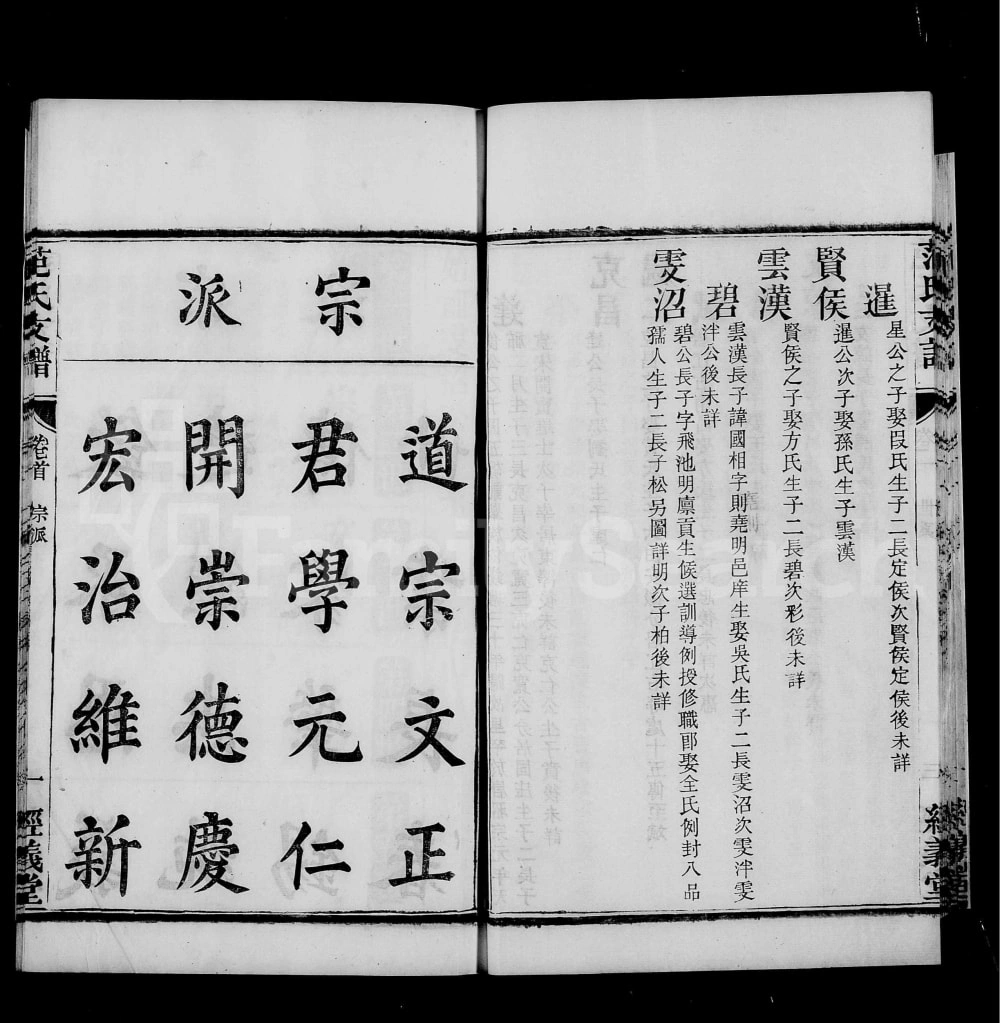 暹
星公之子娶段氏生子二長定侯次賢侯定侯後未詳
賢侯
暹公次子娶孫氏生子雲漢
雲漢
賢侯之子娶方氏生子二長碧次彩後未詳
碧
雲漢長子諱國相字則堯明邑庠生娶吳氏生子二長雯沼次雯泮雯
泮公後未詳
雯沼
碧公長子字飛池明廩貢生候選訓導例授修職郎娶全氏例封八品
孺人生子二長子松另圖詳明次子柏後未詳
宗派
道宗文正
君學元仁
開崇德慶
宏治維新
范氏支譜
卷首 宗派
一
經義堂
FamilySearch